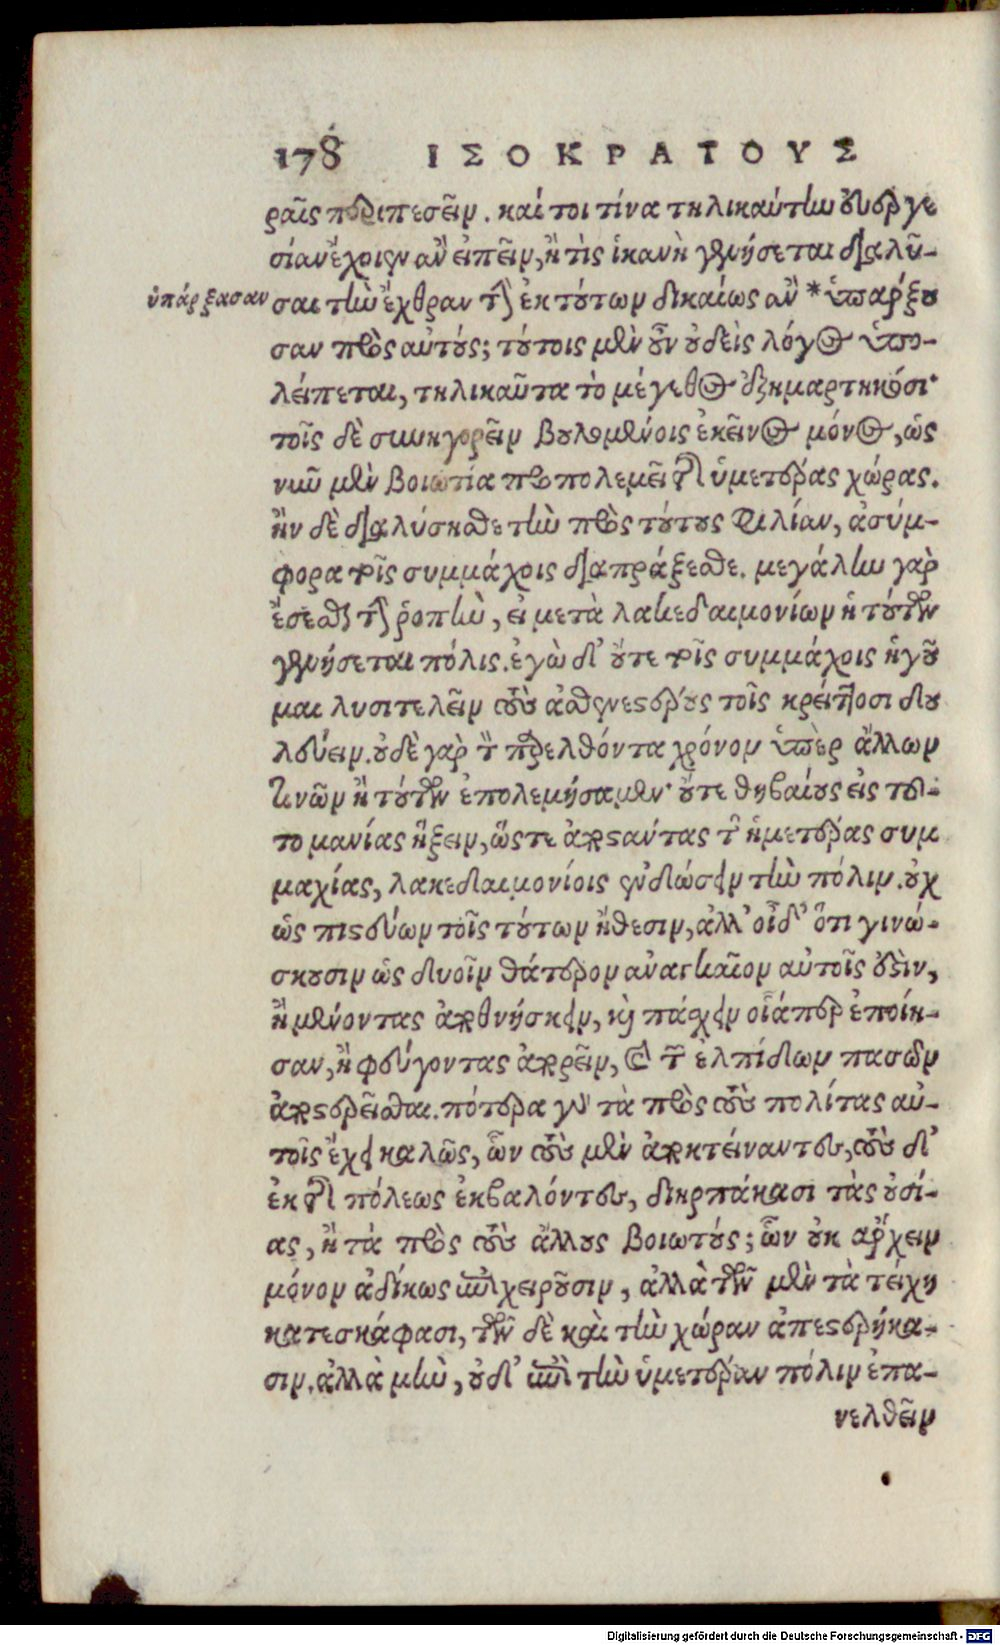 178 ΙΣΟΚΡΑΤΟΥΣ
ραῖς περιπεσεῖν. καί τοι τίνα τηλικαύτην εὐεργε
σίαν ἔχοιεν ἂν εἰπεῖν, ἢ τὶς ἱκανὴ γενήσεται διαλῦ-
ὑπάρξασαν
σαι τὴν ἔχθραν τὴν ἐκ τούτων δικαίως ἂν * ὑπαρξου
σαν πρὸς αὐτούς; τούτοις μὲν οὖν οὐδεὶς λόγος ὑπο-
λείπεται, τηλικαῦτα τὸ μέγεθος ἐξημαρτηκόσι·
τοῖς δὲ συνηγορεῖν βουλομένοις ἐκεῖνος μόνος, ὡς
νῦν μὲν βοιωτία προπολεμεῖ τῆς ὑμετέρας χώρας.
ἢν δὲ διαλύσησθε τὴν πρὸς τούτους φιλίαν, ἀσύμ-
φορα τοῖς συμμάχοις διαπράξεσθε. μεγάλην γὰρ
ἔσεσθαι τὴν ῥοπὴν, εἰ μετὰ λακεδαιμονίων ἡ τούτων
γενήσεται πόλις. ἐγὼ δ' οὔτε τοῖς συμμάχοις ἡγοῦ
μαι λυσιτελεῖν τοὺς ἀσθενεστέρους τοῖς κρείττοσι δου
λεύειν. οὐδὲ γὰρ τὸν παρελθόντα χρόνον ὑπὲρ ἄλλων
τινῶν ἢ τούτων ἐπολεμήσαμεν· οὔτε θηβαίους εἰς του-
το μανίας ἥξειν, ὥστε ἀποστάντας τῆς ἡμετέρας συμ
μαχίας, λακεδαιμονίοις ἐνδώσειν τὴν πόλιν. οὐχ
ὡς πιστεύων τοῖς τούτων ἤθεσιν, ἀλλ' οἶδ' ὅτι γινώ-
σκουσιν ὡς δυοῖν θάτερον ἀναγκαῖον αὐτοῖς ἐστὶν,
ἢ μένοντας ἀποθνήσκειν, καὶ πάσχειν οἷάπερ ἐποίη-
σαν, ἢ φεύγοντας ἀπορεῖν, καὶ τῶν ἐλπίδων πασῶν
ἀποστερεῖσθαι. πότερα γοῦν τὰ πρὸς τοὺς πολίτας αὐ-
τοῖς ἔχει καλῶς, ὧν τοὺς μὲν ἀποκτείναντες, τοὺς δ'
ἐκ τῆς πόλεως ἐκβαλόντες, διηρπάκασι τὰς οὐσί-
ας, ἢ τὰ πρὸς τοὺς ἄλλους βοιωτούς; ὧν οὐκ ἄρχειν
μόνον ἀδίκως ἐπιχειροῦσιν, ἀλλὰ τῶν μὲν τὰ τείχη
κατεσκάφασι, τῶν δὲ καὶ τὴν χώραν ἀπεστερήκα-
σιν. ἀλλὰ μὴν, οὐδ' ἐπὶ τὴν ὑμετέραν πόλιν ἐπα-
νελθεῖν
Digitalisierung gefördert durch die Deutsche Forschungsgemeinschaft - DFG